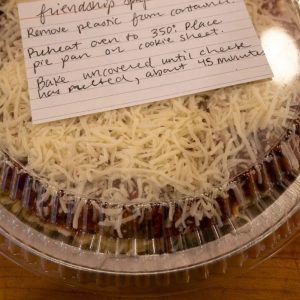 friendship
Remove plastic from container.
Preheat oven to 350°. Place
pie pan on cookie sheet.
Bake uncovered until cheese
has melted, about 45 minutes